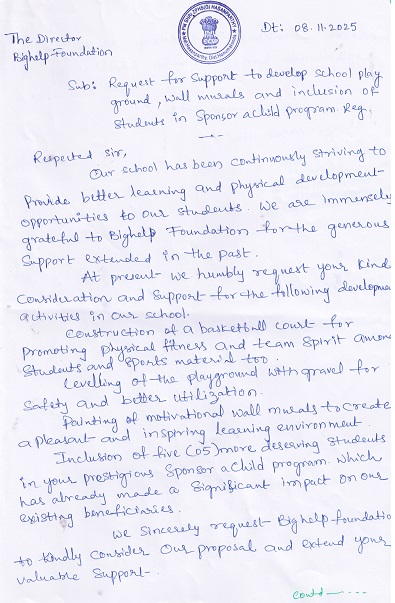 Dt: 08.11.2025
The Director
Bighelp-Foundation
Sub: Request for Support to develop school play
ground, wall murals and inclusion of
students in Sponsor a child program. Reg.
Respected sir,
Our school has been continuously striving to
Provide better learning and physical development
opportunities to our students. We are immensely
grateful to Bighelp Foundation for the generous
Support extended in the past.
At present we humbly request your kind
Consideration and support for the following developme
activities in our school.
Construction of a basketball court for
Promoting physical fitness and team spirit among
Students and sports material too.
Levelling of the playground with gravel for
Safety and better utilization.
Painting of motivational wall murals to create
a pleasant and inspiring learning environment.
Inclusion of five (05) more deserving students
in your prestigious Sponsor a child program. Which
has already made a significant impact on our
existing beneficiaries.
We sincerely request Bighelp foundatio
to kindly consider our proposal and extend your
valuable Support.
contd-....